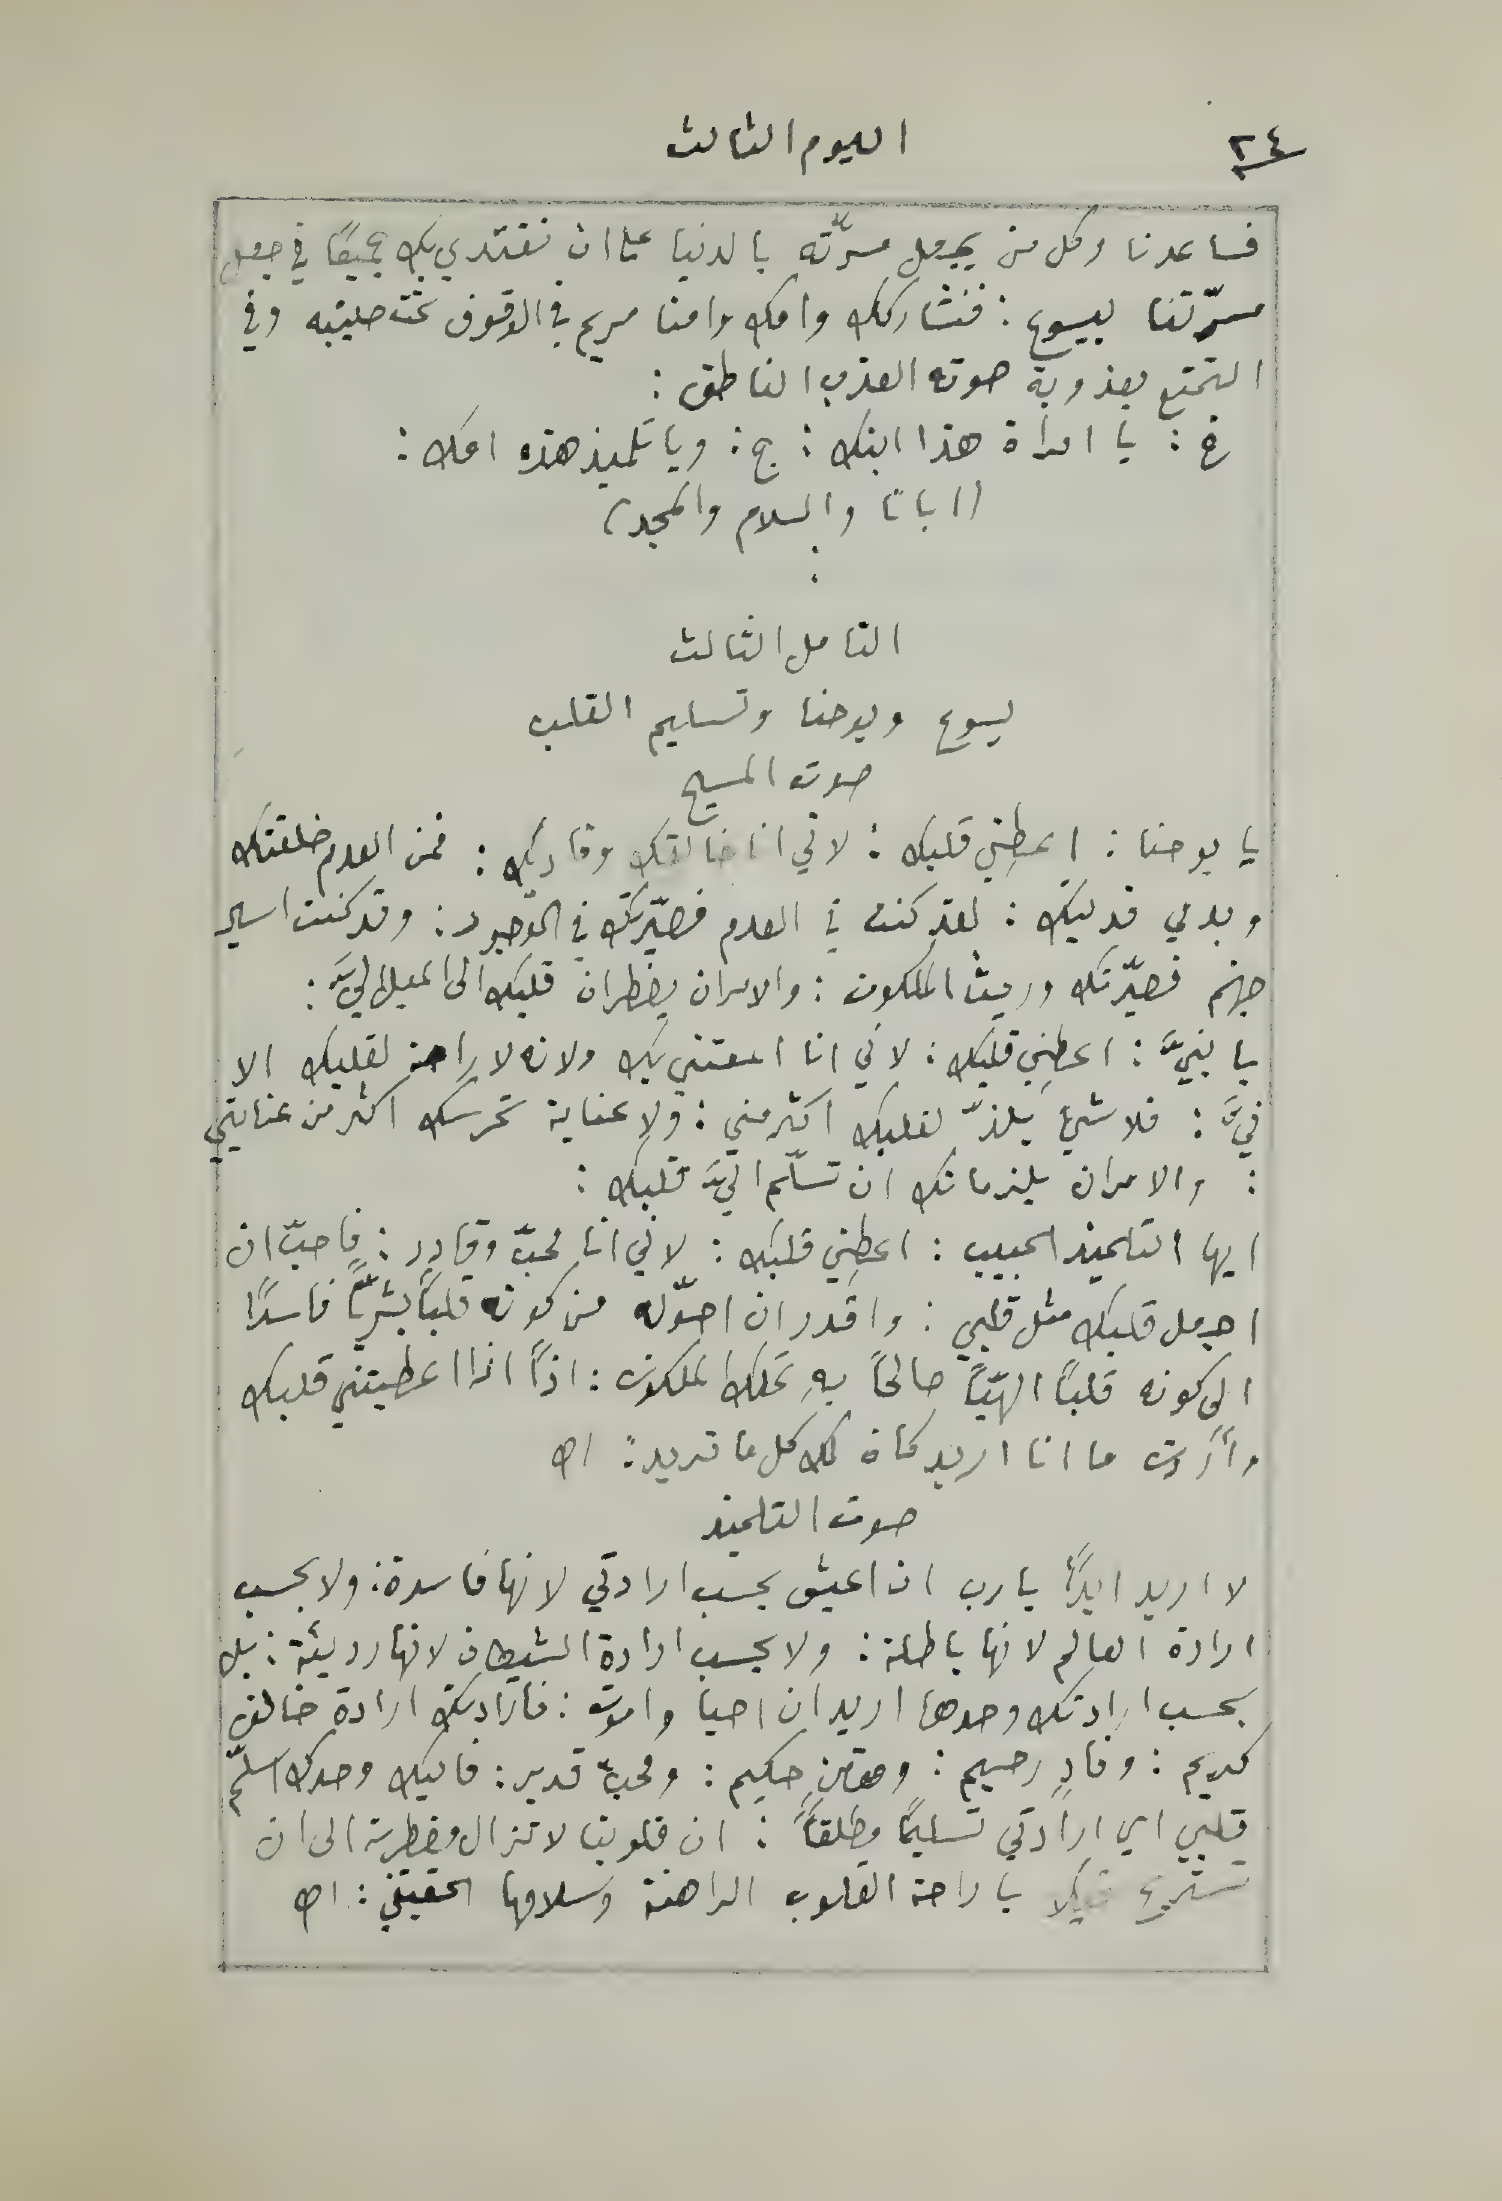 ٢٤
اليوم الثالث
فساعدنا وكل من يجعل مسرّته بالدنيا على ان نقتدي بك جميعًا في جعل
مسرّتنا بيسوع : فنشاركك وامك وامنا مريم في الوقوف تحت صليبه وفي
التمتع بعذوبة صوته العذب الناطق :
خ : يا امراة هذا ابنك : ج : ويا تلميذ هذه امك :
(ابانا والسلام والمجد)
التامل الثالث
يسوع ويوحنا وتسليم القلب
صوت المسيح
يا يوحنا : اعطِني قلبك : لاني انا خالقك وفاديك : فمن العدم خلقتك
وبدمي فديتك : لقد كنت في العدم فصيّرتك في الوجود : وقد كنت اسير
جهنم فصيّرتك وريث الملكوت : والامران يضطران قلبك الى الميل اليَّ :
يا بنيَّ : اعطِني قلبك : لاني انا اعتني بك ولانه لا راحة لقلبك الا
فيَّ : فلا شيء يلذّ لقلبك اكثر مني : ولا عناية تحرسك اكثر من عنايتي
: والامران يلزمانك ان تسلّم اليَّ قلبك :
ايها التلميذ الحبيب : اعطِني قلبك : لاني انا محبّ وقادر : فاحبّ ان
اجعل قلبك مثل قلبي : واقدر ان احوّله من كونه قلبًا بشريًّا فاسدًا
الى كونه قلبًا الهيًّا صالحًا بهِ تملك الملكوت : اذًا اذا اعطيتني قلبك
وأَرَدت ما انا اريد كان لك كل ما تريد : اﻫ
صوت التلميذ
لا اريد ابدًا يا رب ان اعيش بحسب ارادتي لانها فاسدة : ولا بحسب
ارادة العالم لانها باطلة : ولا بحسب ارادة الشيطان لانها رديئة : بل
بحسب ارادتك وحدها اريد ان احيا واموت : فارادتك ارادة خالق
كريم : وفادٍ رحيم : ومعتنٍ حكيم : ومحبّ قدير : فاليك وحدك اسلّم
قلبي اي ارادتي تسليمًا مطلقًا : ان قلوبنا لا تزال مضطربة الى ان
تستريح فيك يا راحة القلوب الراهنة وسلامها الحقيقي : اﻫ